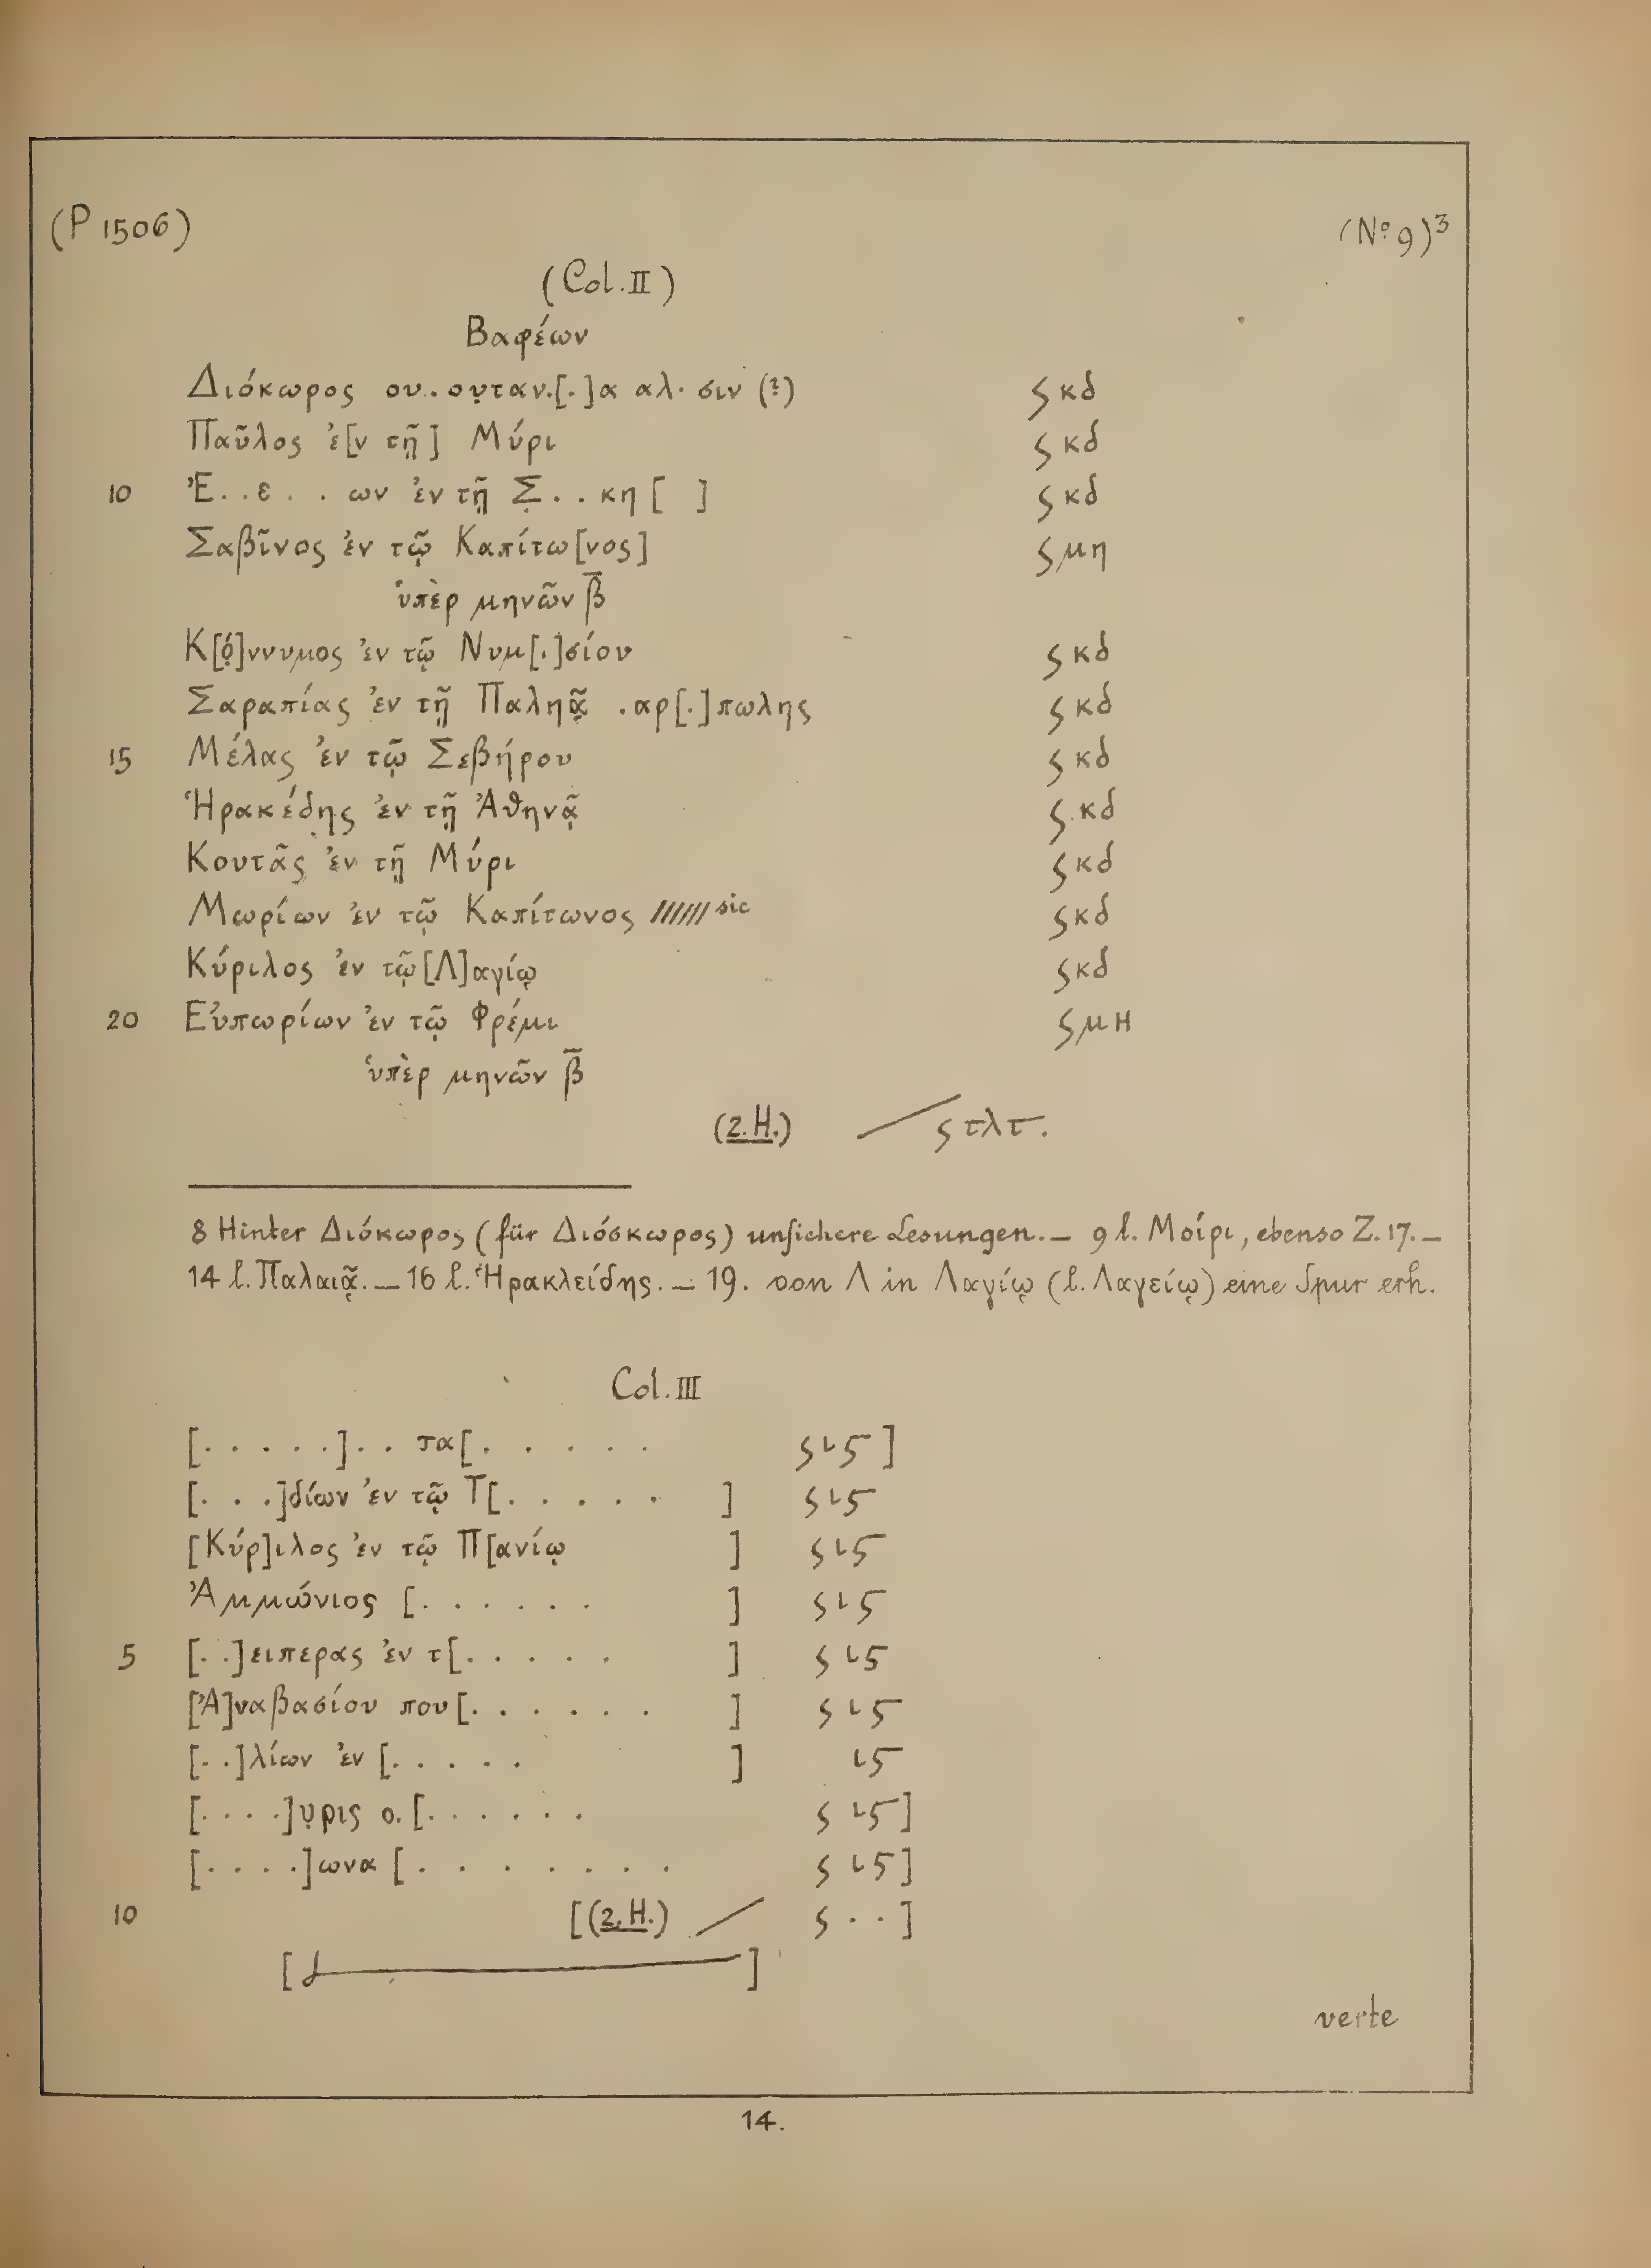 (P 1506) (Nº 9)³
(Col. II)
Βαφέων
Διόκωρος ου..ου̣ταν.[.]α αλ. σιν (?) ϛ κδ
Παῦλος ἐ[ν τῇ] Μύρι ϛ κδ
10 Ἐ..ε...ων ἐν τῇ Σ̣..κη[ ] ϛ κδ
Σαβῖνος ἐν τῷ Καπίτω[νος] ϛ μη
ὑπὲρ μηνῶν β̅
Κ[ό̣]ννυμος ἐν τῷ Νυμ[.]σίου ϛ κδ
Σαραπίας ἐν τῇ Παληᾷ .αρ[.]πωλης ϛ κδ
15 Μέλας ἐν τῷ Σεβήρου ϛ κδ
Ἡρακέδης ἐν τῇ Ἀθηνᾷ ϛ κδ
Κουτᾶς ἐν τῇ Μύρι ϛ κδ
Μωρίων ἐν τῷ Καπίτωνος ////// sic ϛ κδ
Κύριλος ἐν τῷ [Λ]αγίῳ ϛ κδ
20 Εὐπωρίων ἐν τῷ Φρέμι ϛ μη
ὑπὲρ μηνῶν β̅
(2. H.) / ϛ τλτ.
8 Hinter Διόκωρος (für Διόσκωρος) unsichere Lesungen. — 9 l. Μοίρι, ebenso Z. 17. —
14 l. Παλαιᾷ. — 16 l. Ἡρακλείδης. — 19. von Λ in Λαγίῳ (l. Λαγείῳ) eine Spur erh.
Col. III
[.....].. τα[..... ϛ ιϛ]
[...]δίων ἐν τῷ Τ[..... ] ϛ ιϛ
[Κύρ]ιλος ἐν τῷ Π[ανίῳ ] ϛ ιϛ
Ἀμμώνιος [...... ] ϛ ιϛ
5 [..]ειπερας ἐν τ[..... ] ϛ ιϛ
[Ἀ]ναβασίου που[...... ] ϛ ιϛ
[..]λίων ἐν [..... ] ιϛ
[....]υ̣ρις ο.[...... ϛ ιϛ]
[....]ωνα [....... ϛ ιϛ]
10 [(2. H.) / ϛ ..]
verte
14.